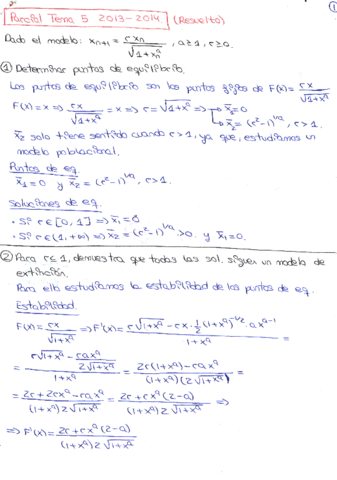 ①
Parcial Tema 5 2013-2014. (Resuelto)
Dado el modelo: xₙ₊₁ = r xₙ / √(1+xₙᵃ), a≥1, r≥0.
① Determinar puntos de equilibrio.
Los puntos de equilibrio son los puntos fijos de F(x) = rx / √(1+xᵃ)
F(x)=x ⇒ rx / √(1+xᵃ) = x ⇒ r = √(1+xᵃ) ⇒ x̄₁=0
x̄₂=(r²-1)^(1/a), r>1.
x̄₂ solo tiene sentido cuando r>1, ya que, estudiamos un
modelo poblacional.
Puntos de eq.
x̄₁=0 y x̄₂=(r²-1)^(1/a), r>1.
Soluciones de eq.
• Si r∈[0,1] ⇒ x̄₁=0
• Si r∈(1,+∞) ⇒ x̄₂=(r²-1)^(1/a)>0 y x̄₁=0.
② Para r≤1, demuestra que todas las sol. siguen un modelo de
extinción.
Para ello estudiamos la estabilidad de los puntos de eq.
Estabilidad.
F(x) = rx / √(1+xᵃ) ⇒ F'(x) = (r√(1+xᵃ) - rx·½(1+xᵃ)^(-1/2)·a x^(a-1)) / (1+xᵃ) =
= (r√(1+xᵃ) - r a xᵃ / 2√(1+xᵃ)) / (1+xᵃ) = (2r(1+xᵃ) - r a xᵃ) / ((1+xᵃ)(2√(1+xᵃ))) =
= (2r+2rxᵃ-raxᵃ) / ((1+xᵃ)2√(1+xᵃ)) = (2r+rxᵃ(2-a)) / ((1+xᵃ)2√(1+xᵃ)) ⇒
⇒ F'(x) = (2r+rxᵃ(2-a)) / ((1+xᵃ)2√(1+xᵃ))